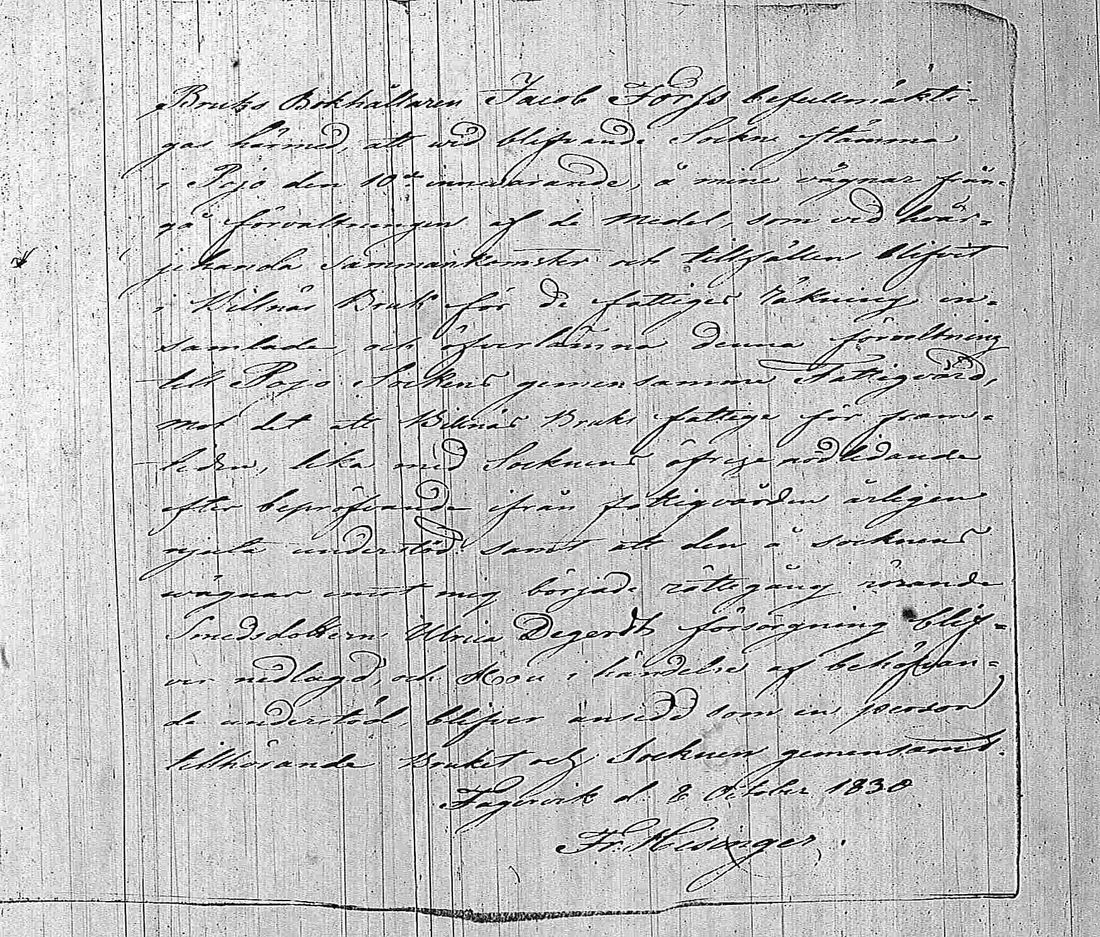 Bruks Bokhållaren Jacob Forss befullmäkti-
gas härmed, att vid blifvande Sockne stämma
i Pojo den 10de innevarande, å mine vägnar från-
gå förvaltningen af de Medel, som vid hvar-
jehanda Sammankomster och tillfällen blifvit
i Billnäs Bruk för de fattiges räkning in-
samlade, och öfverlämna denna förvaltning
till Pojo Sockens gemensamma Fattigvård,
mot det att Billnäs Bruks fattige för fram-
tiden, lika med Socknens öfrige nödlidande
efter bepröfvande ifrån fattigvården årligen
njuta understöd samt att den å socknens
wägnar emot mig började rättegång rörande
Smedsdottern Ulrica Degerdts försörgning blif-
ver nedlagd, och Hon i händelse af behöfvan-
de understöd blifver ansedd som en person
tillhörande Bruket och Socknen gemensamt.
Fagervik d. 8 October 1830
Fr. Hisinger.